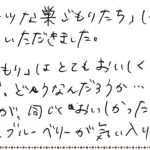 ーツな巣ごもりたち」し
いただきました。
もり」はとてもおいしく
ど、どうなんだろうか…
が、同じくおいしかった
ブルーベリーが気に入り